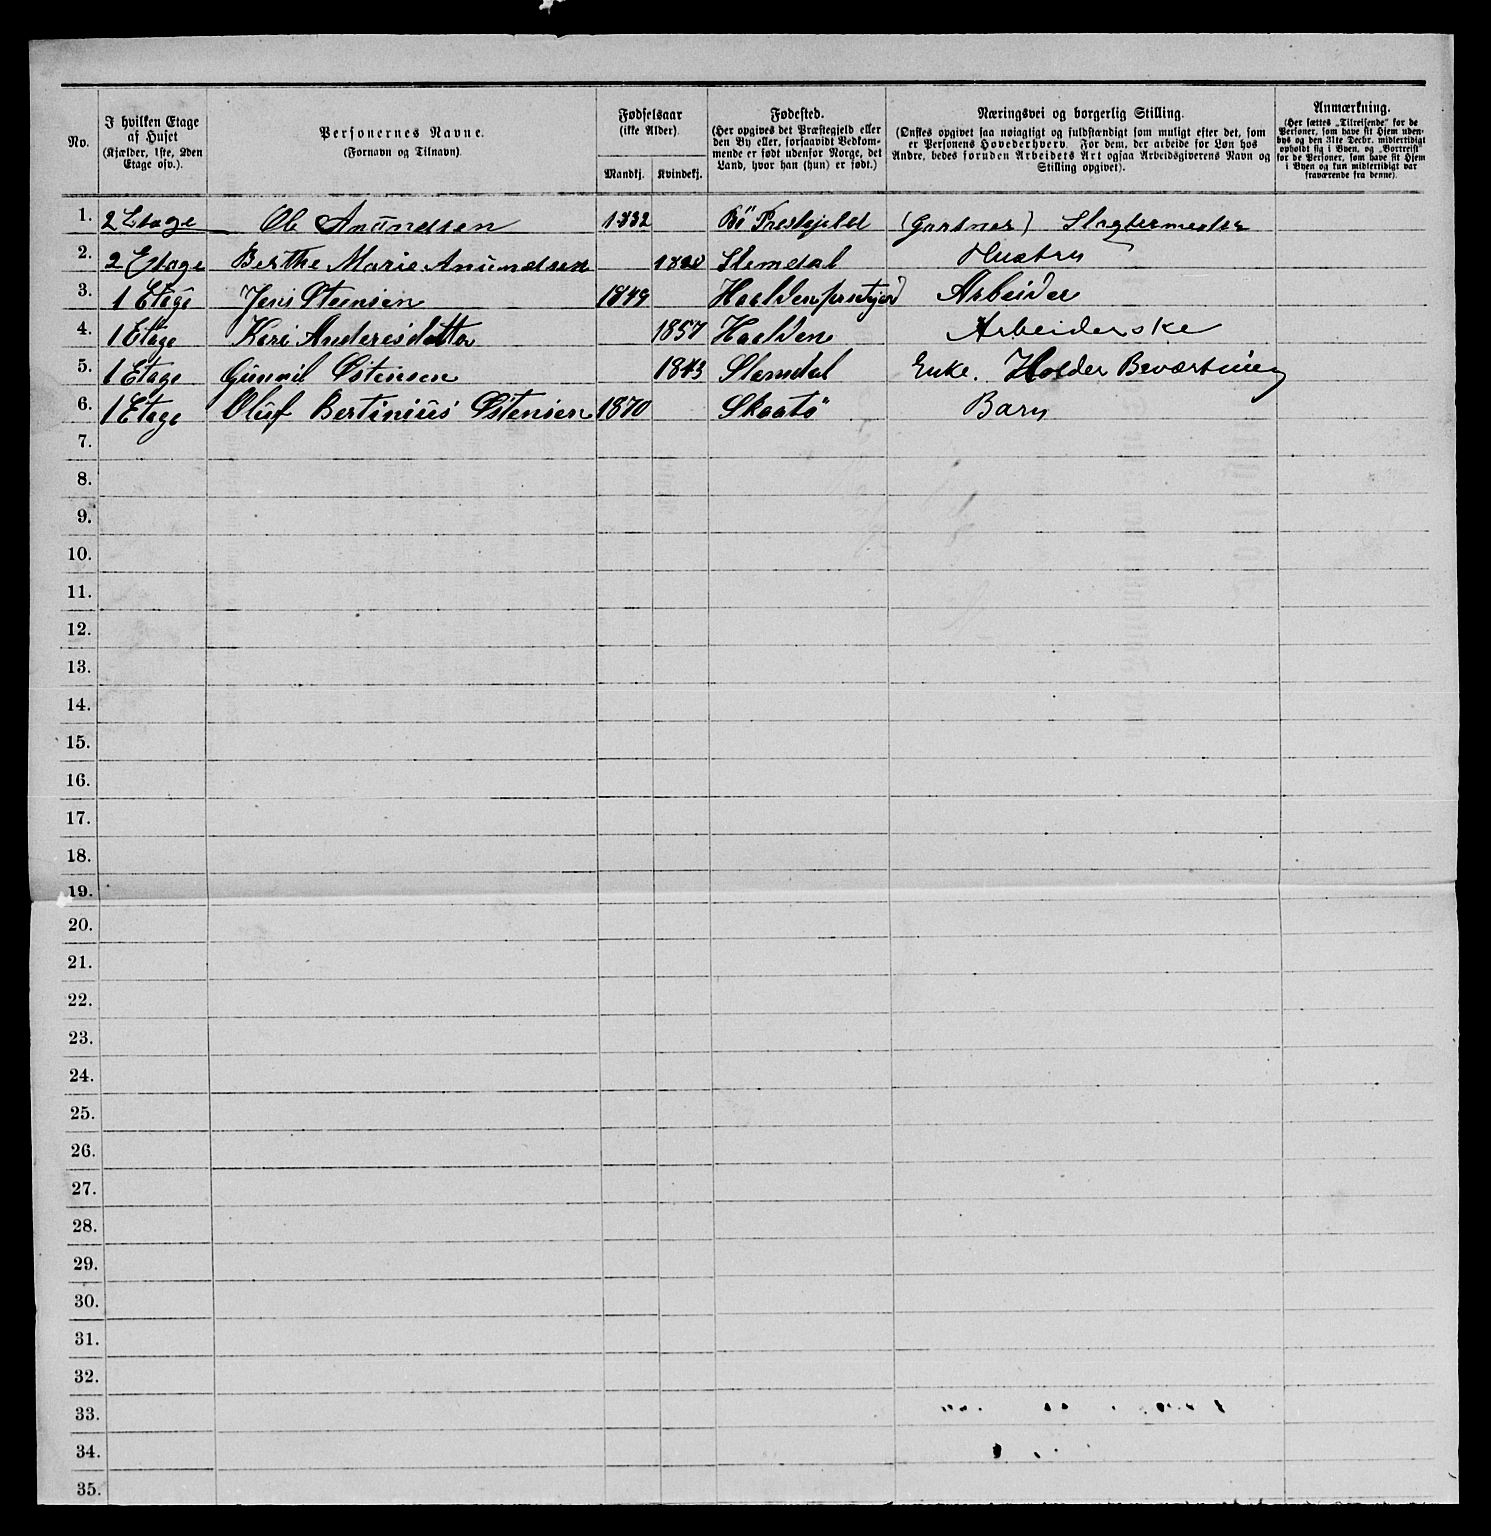 No.
I hvilken Etage af Huset (Kjælder, 1ste, 2den Etage osv.).
Personernes Navne.
(Fornavn og Tilnavn).
Fødselsaar
(ikke Alder).
Mandkj. Kvindekj.
Fødested.
(Her opgives det Præstegjeld eller den By eller, forsaavidt Vedkommende er født udenfor Norge, det Land, hvor han (hun) er født.)
Næringsvei og borgerlig Stilling.
(Ønskes opgivet saa nøiagtigt og fuldstændigt som muligt efter det, som er Personens Hovederhverv. For dem, der arbeide for Løn hos Andre, bedes foruden Arbeidets Art ogsaa Arbeidsgiverens Navn og Stilling opgivet).
Anmærkning.
(Her sættes „Tilreisende“ for de Personer, som have sit Hjem udenbys og den 31te Decbr. midlertidigt opholdt sig i Byen, og „Bortreist“ for de Personer, som have sit Hjem i Byen og kun midlertidigt var fraværende fra denne).
1. 2 Etage Ole Anundsen 1832 Bö (Gartner) Slagtermester
2. 2 Etage Berthe Marie Anundsen Slemdal Hustru
3. 1 Etage Jens 1849 Arbeider
4. 1 Etage Kari 1857 Arbeiderske
5. 1 Etage Gunnil Östensen 1843 Slemdal Enke. Holder Beværtning
6. 1 Etage Oluf Bertinius Östensen 1870 Skaatö Barn
7.
8.
9.
10.
11.
12.
13.
14.
15.
16.
17.
18.
19.
20.
21.
22.
23.
24.
25.
26.
27.
28.
29.
30.
31.
32.
33.
34.
35.